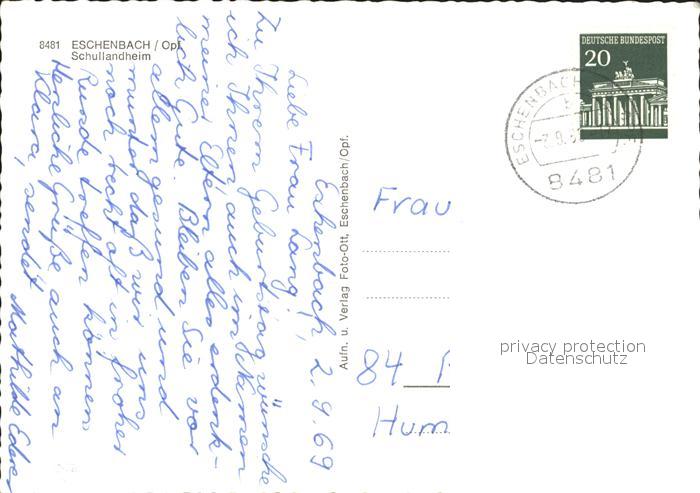 8481 ESCHENBACH / Opf.
Schullandheim
Eschenbach, 2.9.69
Liebe Frau Lang!
Zu Ihrem Geburtstag wünsche
ich Ihnen auch im Namen
meiner Eltern alles erdenk-
lich Gute. Bleiben Sie vor
allem gesund und
munter, daß wir uns
noch recht oft in froher
Runde treffen können.
Herzliche Grüße auch an
Klara, sendet Mathilde Ederer
Aufn. u. Verlag Foto-Ott, Eschenbach/Opf.
DEUTSCHE BUNDESPOST
20
ESCHENBACH
8481
Frau
84
Hum
privacy protection
Datenschutz